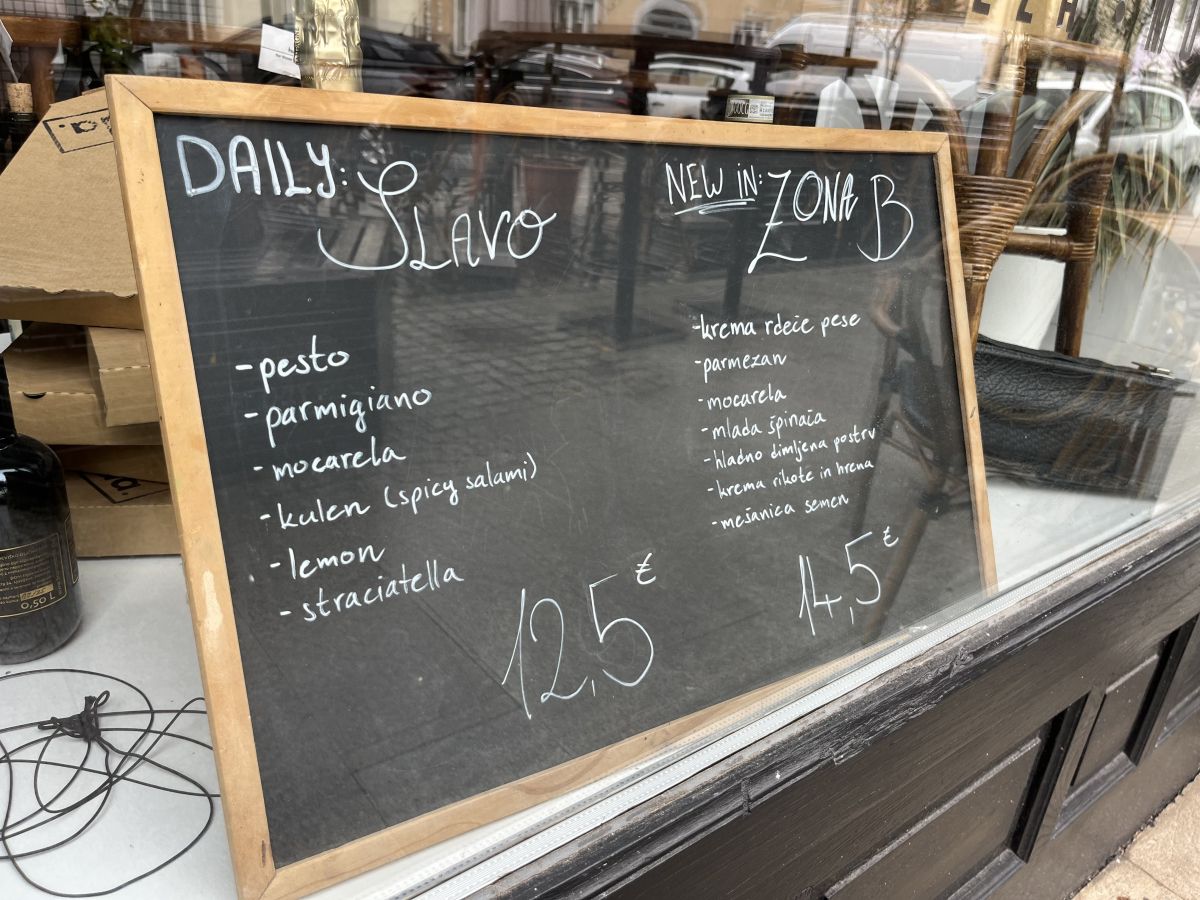 DAILY:
SLAVO
-pesto
-parmigiano
-mocarela
-kulen (spicy salami)
-lemon
-straciatella
12,5€
NEW iN:
ZONA B
-krema rdeče pese
-parmezan
-mocarela
-mlada špinača
-hladno dimljena postrv
-krema rikote in hrena
-mešanica semen
14,5€
0,50 L